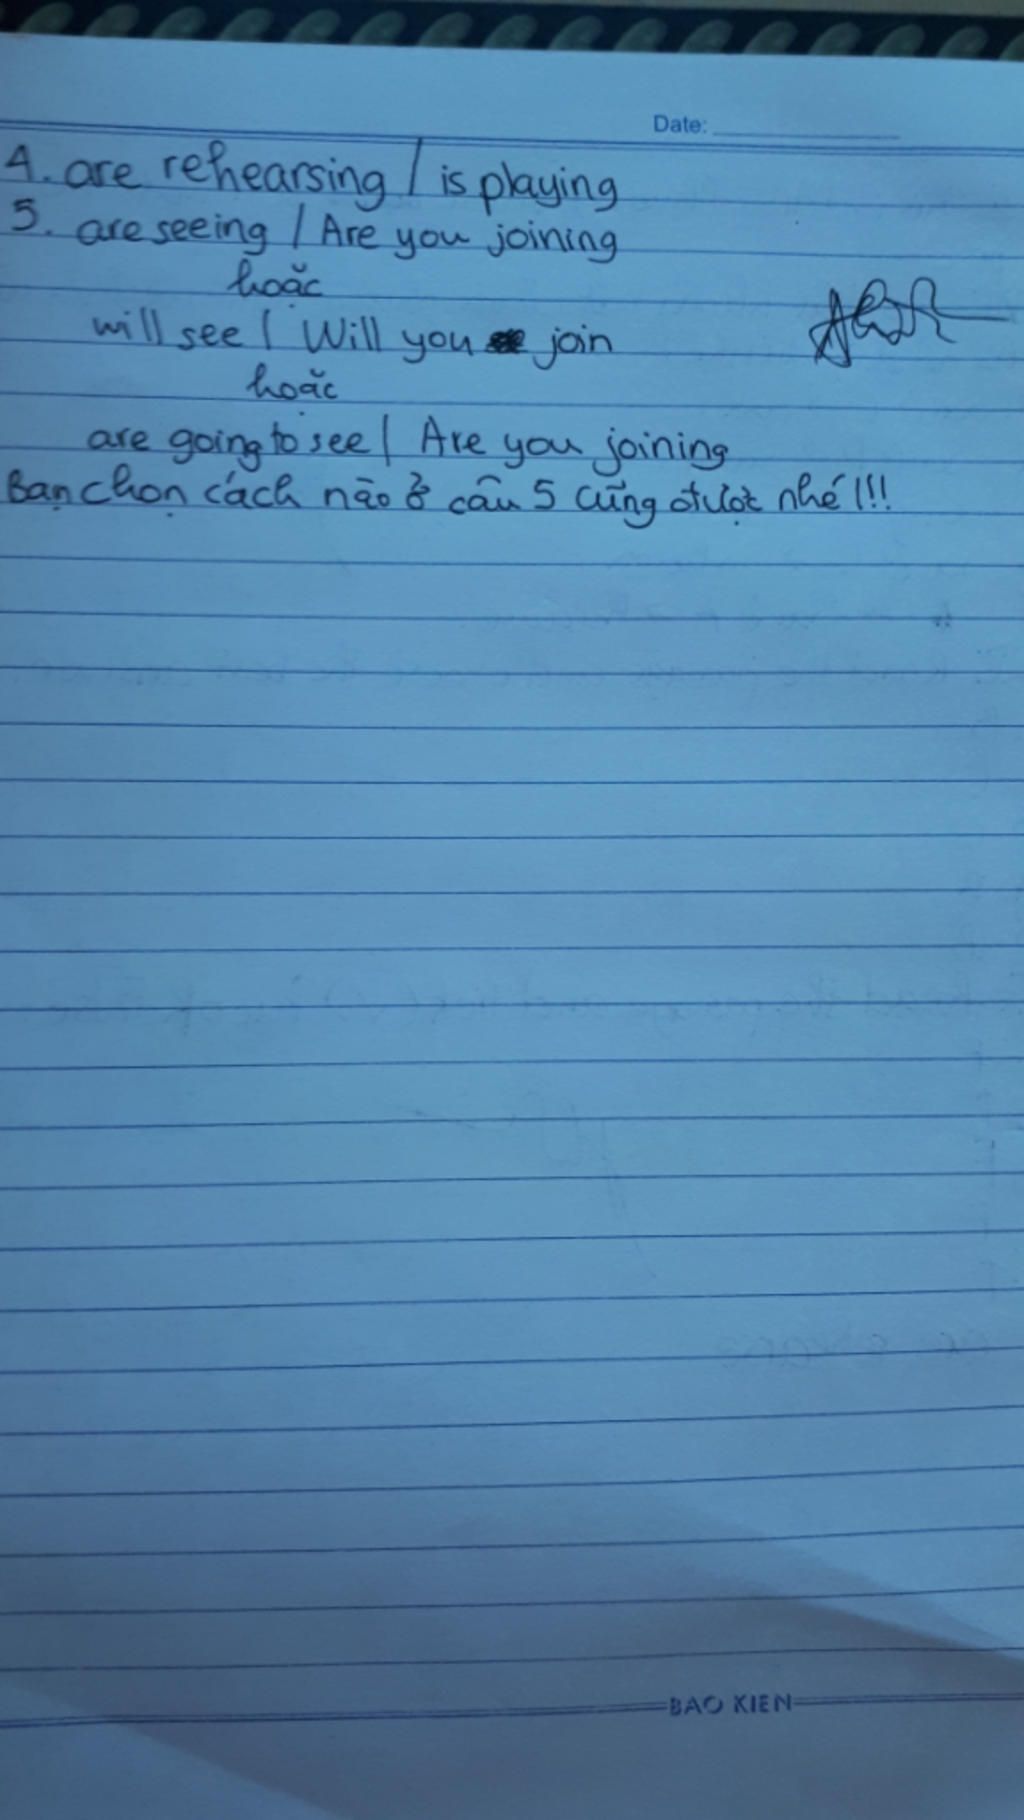 Date:
4. are rehearsing / is playing
5. are seeing / Are you joining
hoặc
will see / Will you join
hoặc
are going to see / Are you joining
Bạn chọn cách nào ở câu 5 cũng được nhé!!!
BAO KIEN